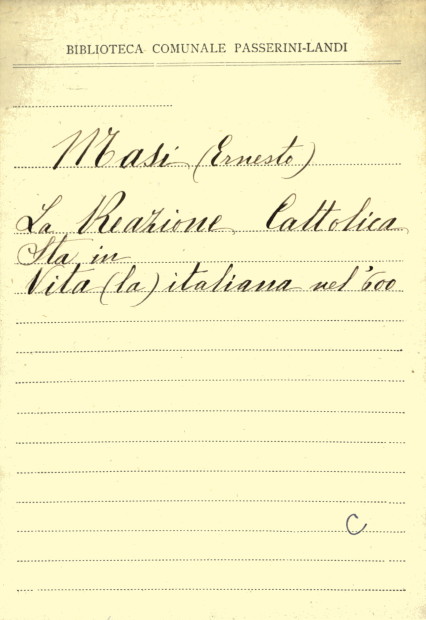 BIBLIOTECA COMUNALE PASSERINI-LANDI
Masi (Ernesto)
La Reazione Cattolica
Sta in
Vita (la) italiana nel '600
C